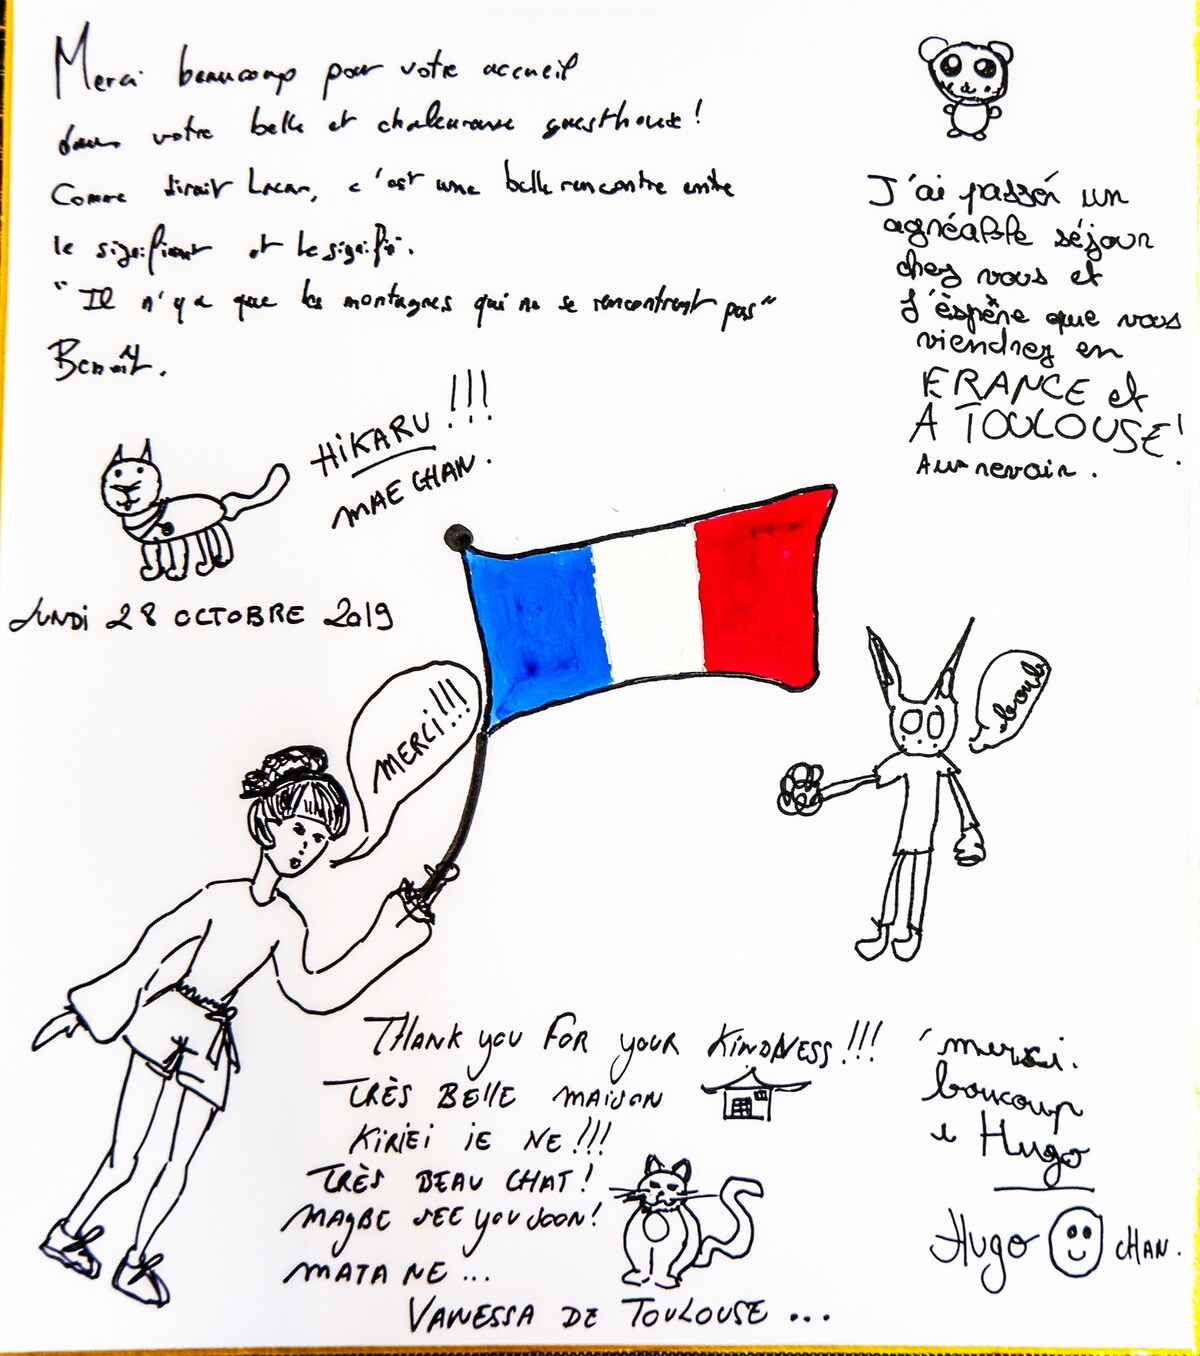 Merci beaucoup pour votre accueil
dans votre belle et chaleureuse guesthouse!
Comme dirait Lacan, c'est une belle rencontre entre
le signifiant et le signifié.
"Il n'y a que les montagnes qui ne se rencontrent pas"
Benoît.
J'ai passén un
agréable séjour
chez vous et
J'èspére que vous
viendrez en
FRANCE et
A TOULOUSE!
Aur revoir.
HIKARU!!!
MAE CHAN.
LUNDI 28 OCTOBRE 2019
MERCI!!!
THANK YOU FOR YOUR KINDNESS!!!
TRÈS BELLE MAISON
KIRIEI IE NE!!!
TRÈS BEAU CHAT!
MAYBE SEE YOU SOON!
MATA NE...
VANESSA DE TOULOUSE...
merci.
boucoup
Hugo
Hugo CHAN.